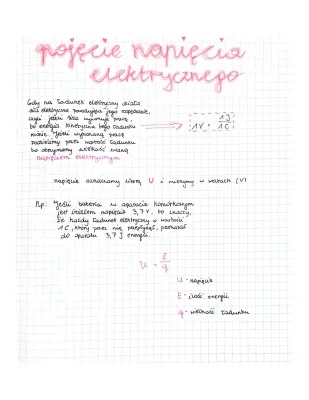 pojęcie napięcia
elektrycznego
Gdy na ładunek elektryczny działa
siła elektryczna powodująca jego rozpędzanie,
czyli jeśli siła wykonuje pracę,
to energia kinetyczna tego ładunku
rośnie. Jeśli wykonaną pracę
podzielimy przez wartość ładunku
to otrzymamy wielkość zwaną
napięciem elektrycznym
1V = 1J / 1C
napięcie oznaczamy literą U i mierzymy w woltach (V)
Np: Jeśli bateria w aparacie komórkowym
jest źródłem napięcia 3,7 V, to znaczy,
że każdy ładunek elektryczny o wartości
1C, który przez nią przepłynął, przekazał
do aparatu 3,7 J energii.
U = E / q
U - napięcie
E - ilość energii
q - wielkość ładunku